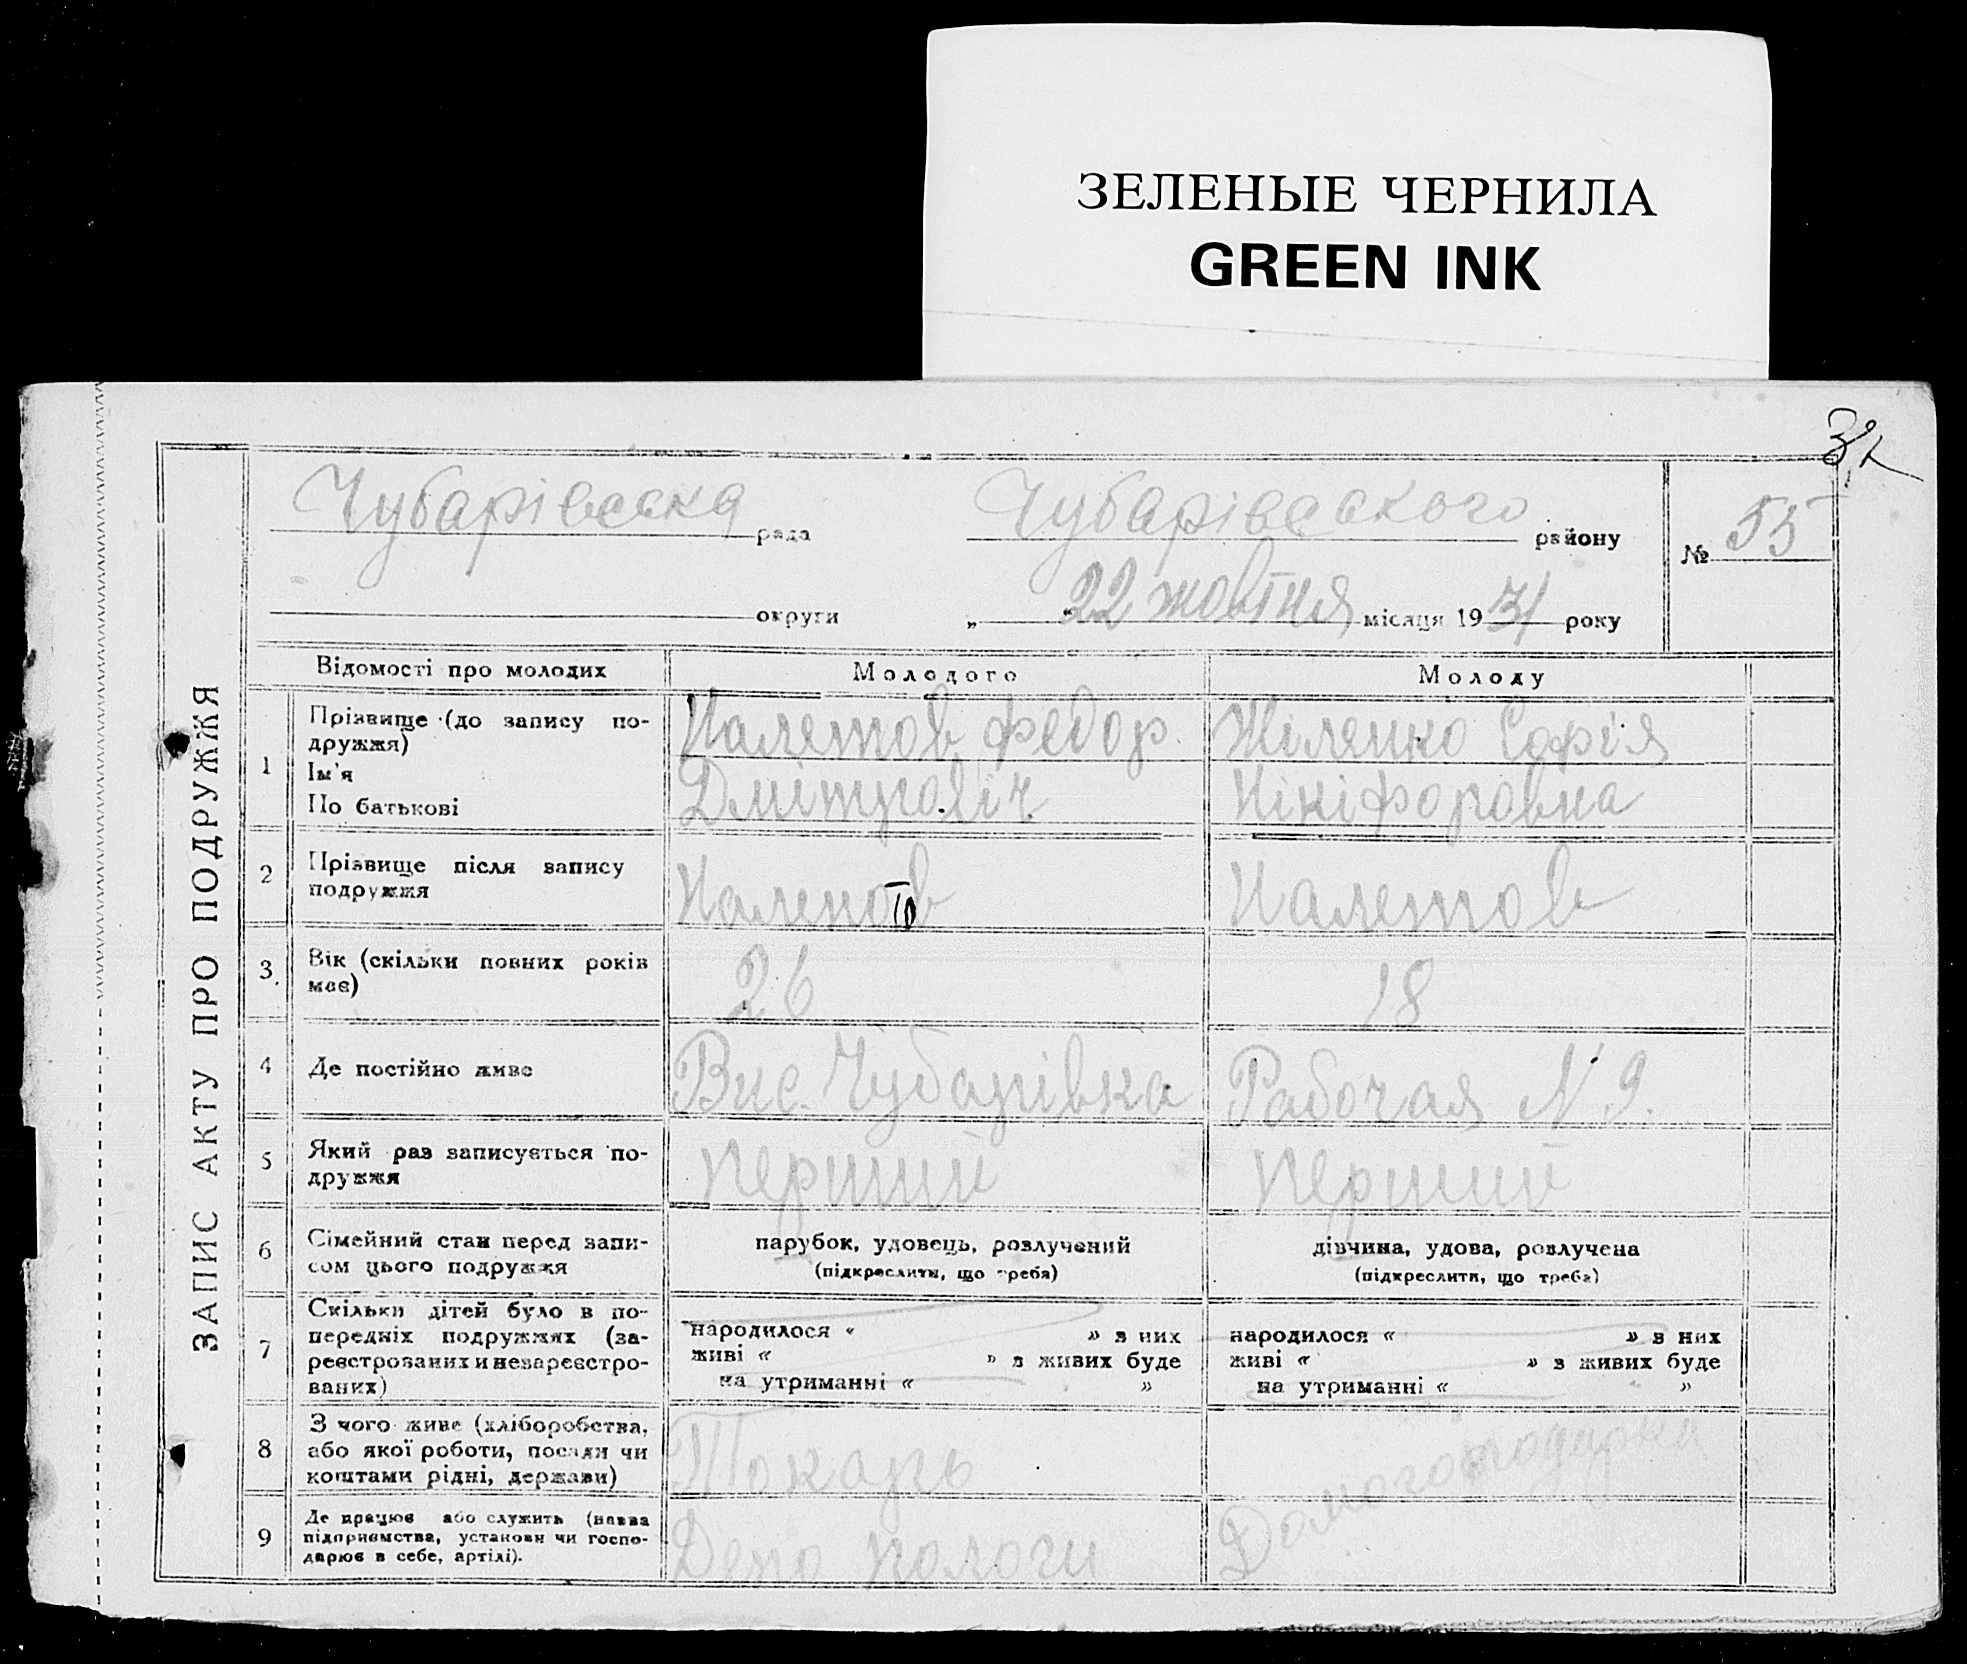 ЗЕЛЕНЫЕ ЧЕРНИЛА
GREEN INK
ЗАПИС АКТУ ПРО ПОДРУЖЖЯ
Чубарівська рада Чубарівського району
№ 55
округи „ 22 " жовтня місяця 1931 року
Відомості про молодих
Молодого
Молоду
1
Прізвище (до запису по-
дружжя)
Ім'я
По батькові
Налетов Федор
Дмітровіч
Жіленко Софія
Нікіфоровна
2
Прізвище після запису
подружжя
Налетов
Налетов
3
Вік (скільки повних років
має)
26
18
4
Де постійно живе
Вис. Чубарівка
Рабочая N 9.
5
Який раз записується по-
дружжя
Перший
Перший
6
Сімейний стан перед запи-
сом цього подружжя
парубок, удовець, розлучений
(підкреслити, що треба)
дівчина, удова, розлучена
(підкреслити, що треба)
7
Скільки дітей було в по-
передніх подружжях (за-
реєстрованих и незареєстро-
ваних)
народилося « » з них
живі « » з живих буде
на утриманні « »
народилося « » з них
живі « » з живих буде
на утриманні « »
8
З чого живе (хліборобства,
або якої роботи, посади чи
коштами рідні, держави)
Токарь
Домогосподарка
9
Де працює або служить (назва
підприємства, установи чи госпо-
дарює в себе, артілі).
Депо пологи